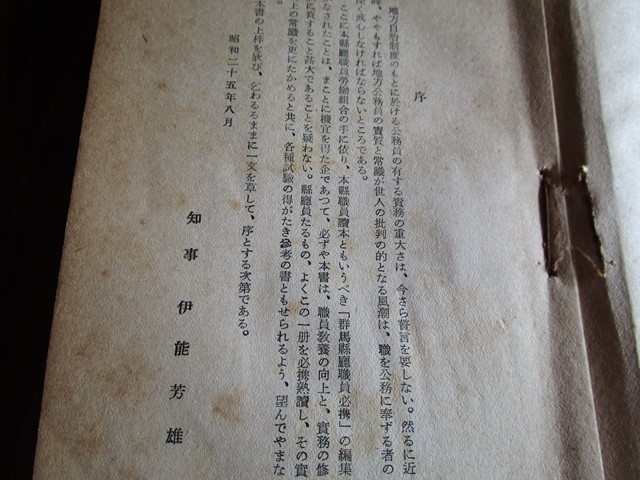 序
地方自治制度のもとに於ける公務員の有する責務の重大さは、今さら贅言を要しない。然るに近
時、ややもすれば地方公務員の實質と常識が世人の批判の的となる風潮は、職を公務に奉ずる者の
深く戒心しなければならないところである。
ここに本縣廳職員勞働組合の手に依り、本縣職員讀本ともいうべき「群馬縣廳職員必携」の編集
なされたことは、まことに機宜を得た企であつて、必ずや本書は、職員敎養の向上と、實務の修
に資すること甚大であることを疑わない。縣廳員たるもの、よくこの一册を必携熟讀し、その實
上の常識を更にたかめると共に、各種試驗の得がたき參考の書ともせられるよう、望んでやまな
本書の上梓を欣び、乞わるるままに一文を草して、序とする次第である。
昭和二十五年八月
知事 伊能芳雄